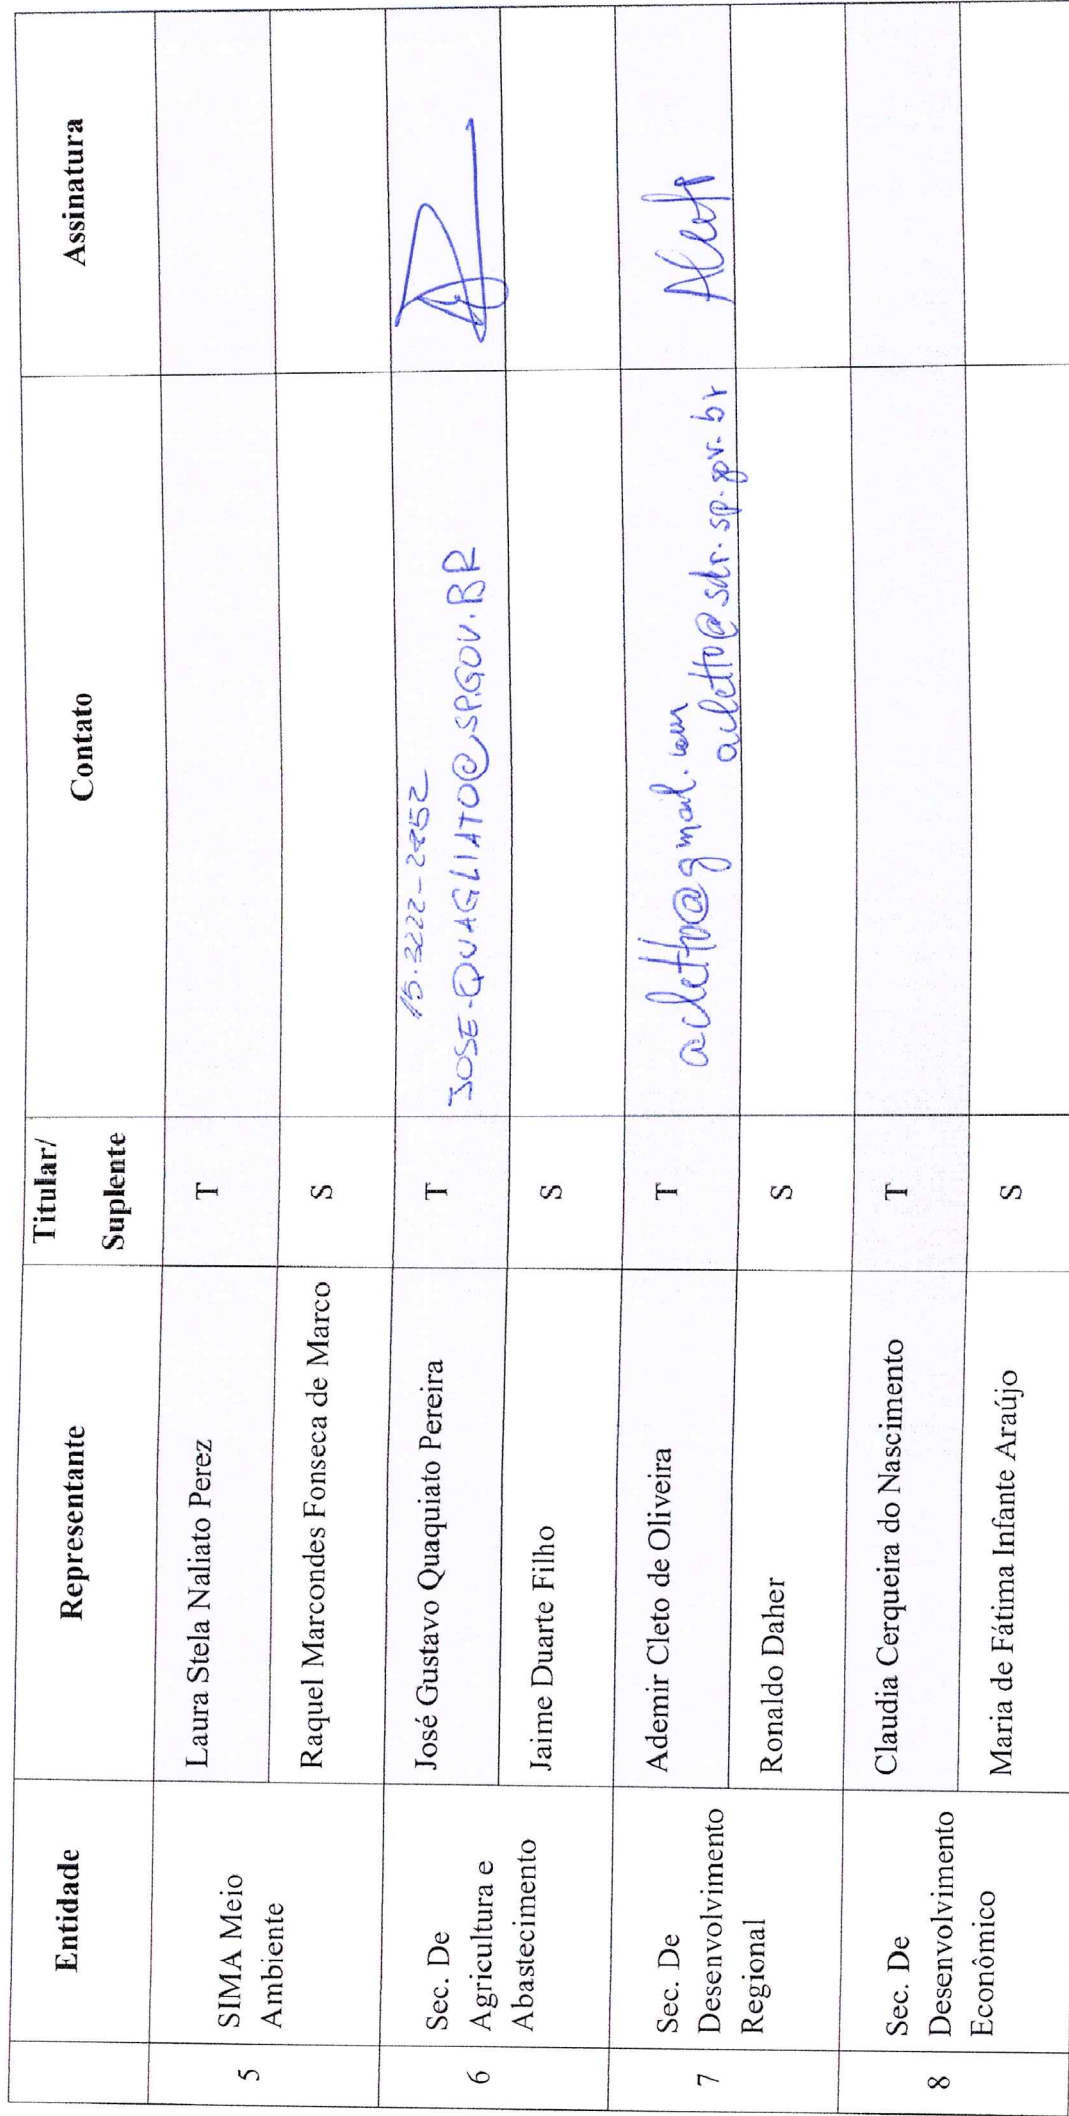 Entidade Representante Titular/ Suplente Contato Assinatura
5 SIMA Meio Ambiente
Laura Stela Naliato Perez T
Raquel Marcondes Fonseca de Marco S
6 Sec. De Agricultura e Abastecimento
José Gustavo Quaquiato Pereira T
15.3222-2852
JOSE.QUAGLIATO@SP.GOV.BR
Jaime Duarte Filho S
7 Sec. De Desenvolvimento Regional
Ademir Cleto de Oliveira T
acletto@gmail.com
acletto@sdr.sp.gov.br
Ronaldo Daher S
8 Sec. De Desenvolvimento Econômico
Claudia Cerqueira do Nascimento T
Maria de Fátima Infante Araújo S